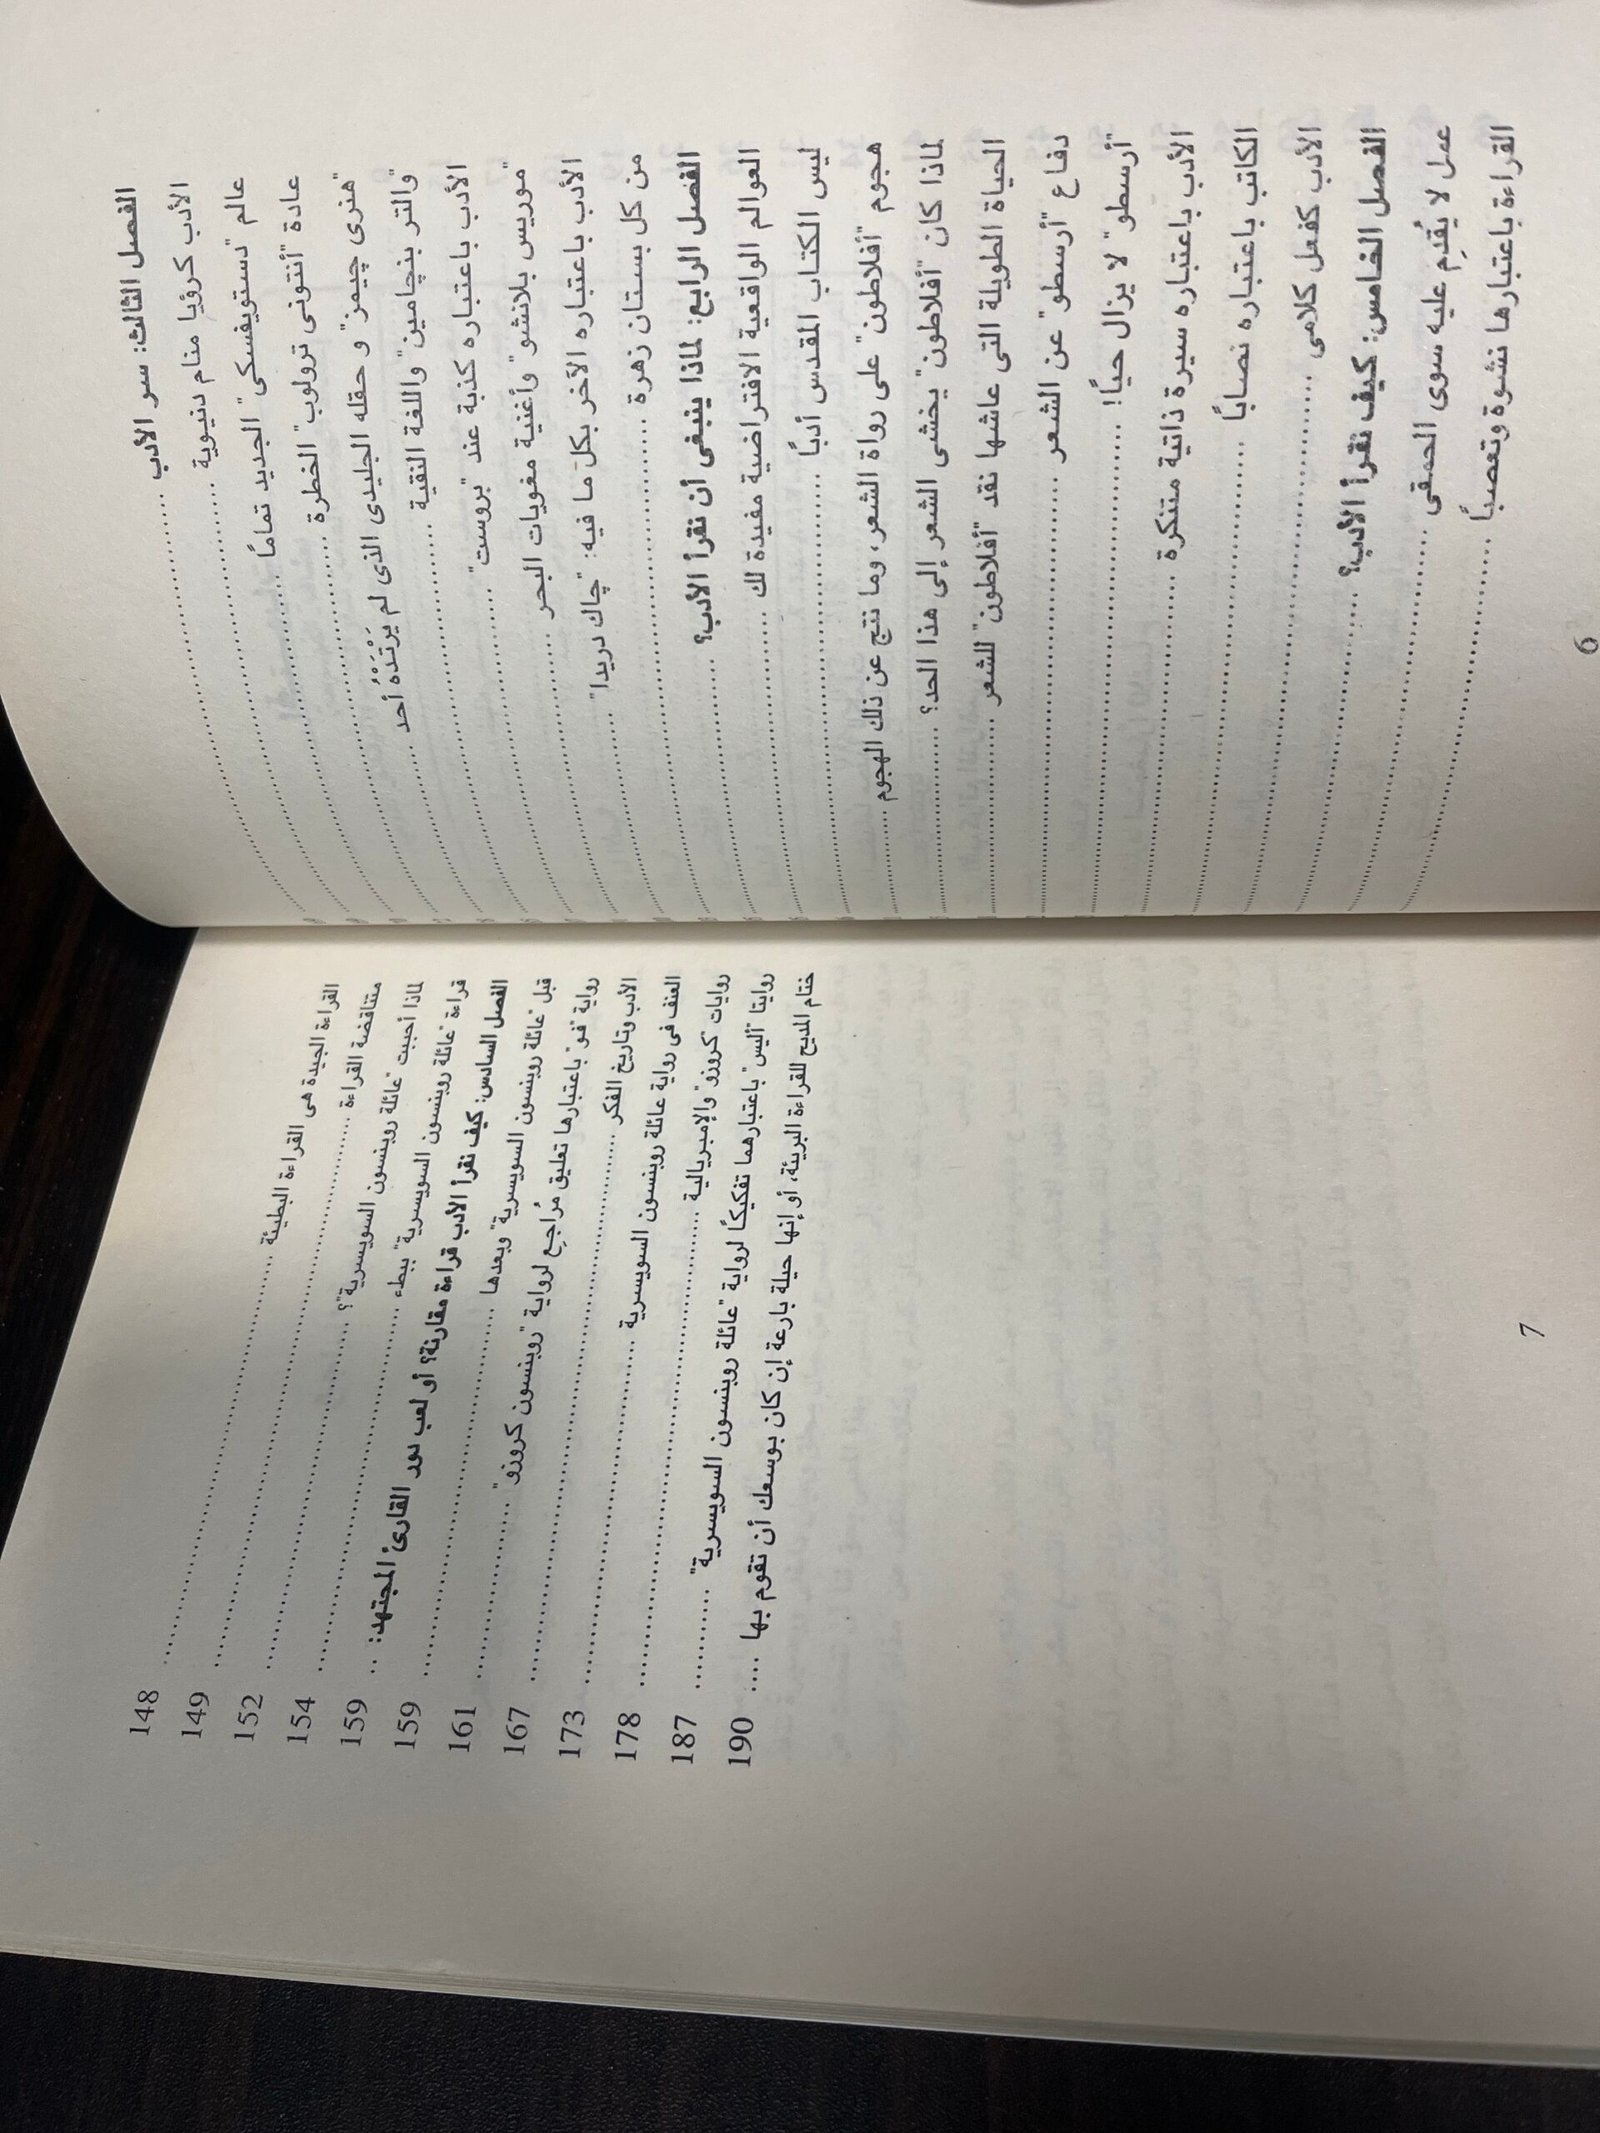 الفصل الثالث: سر الأدب ..........
الأدب كرؤيا منام دنيوية ..........
عالم "دستويفسكى" الجديد تمامًا ..........
عادة "أنتونى ترولوب" الخطرة ..........
"هنرى چيمز" و حقله الجليدى الذى لم يَرْتَدْهُ أحد ..........
"والتر بنچامين" واللغة النقية ..........
الأدب باعتباره كذبة عند "بروست" ..........
"موريس بلانشو" وأغنية مغويات البحر ..........
الأدب باعتباره الآخر بكل ما فيه: "چاك دريدا" ..........
من كل بستان زهرة ..........
الفصل الرابع: لماذا ينبغى أن نقرأ الأدب؟ ..........
العوالم الواقعية الافتراضية مفيدة لك ..........
ليس الكتاب المقدس أدبًا ..........
هجوم "أفلاطون" على رواة الشعر، وما نتج عن ذلك الهجوم ..........
لماذا كان "أفلاطون" يخشى الشعر إلى هذا الحد؟ ..........
الحياة الطويلة التى عاشها نقد "أفلاطون" للشعر ..........
دفاع "أرسطو" عن الشعر ..........
"أرسطو" لا يزال حيًا! ..........
الأدب باعتباره سيرة ذاتية متنكرة ..........
الكاتب باعتباره نصابًا ..........
الأدب كفعل كلامى ..........
الفصل الخامس: كيف نقرأ الأدب؟ ..........
عمل لا يُقدِم عليه سوى الحمقى ..........
القراءة باعتبارها نشوة وتعصبًا ..........
6
القراءة الجيدة هى القراءة البطيئة .......... 148
متناقضة القراءة .......... 149
لماذا أحببت "عائلة روبنسون السويسرية"؟ .......... 152
قراءة "عائلة روبنسون السويسرية" ببطء .......... 154
الفصل السادس: كيف نقرأ الأدب قراءة مقارنة؟ أو لعب دور القارئ المجتهد: .. 159
قبل "عائلة روبنسون السويسرية" وبعدها .......... 159
رواية "فو" باعتبارها تعليق مُراجِع لرواية "روبنسون كروزو" .......... 161
الأدب وتاريخ الفكر .......... 167
العنف فى رواية عائلة روبنسون السويسرية .......... 173
روايات "كروزو" والإمبريالية .......... 178
روايتا "أليس" باعتبارهما تفكيكًا لرواية "عائلة روبنسون السويسرية" .......... 187
ختام المديح للقراءة البريئة، أو إنها حيلة بارعة إن كان بوسعك أن تقوم بها .... 190
7